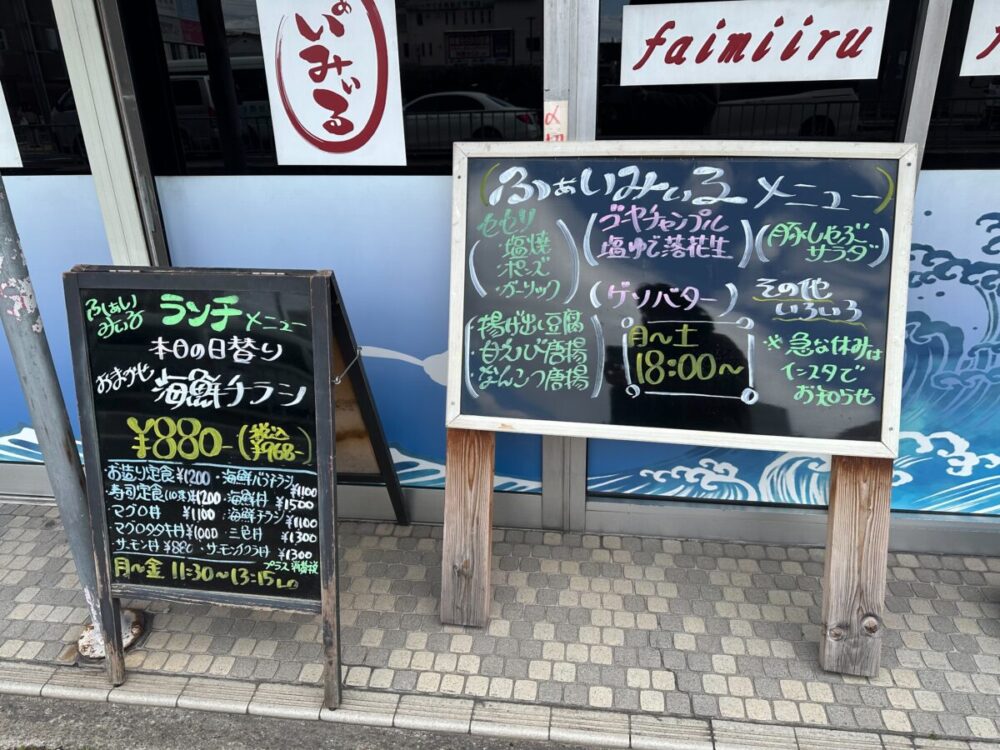 ぁいみぃる
faimiiru
〆切
ふぁいみぃる ランチメニュー
本日の日替り
おまかせ 海鮮チラシ
¥880-(税込¥968-)
・お造り定食 ¥1200 ・海鮮バラチラシ ¥1100
・寿司定食(10貫)¥1200 ・海鮮丼 ¥1500
・マグロ丼 ¥1100 ・海鮮チラシ ¥1100
・マグロタタキ丼 ¥1000 ・三色丼 ¥1300
・サーモン丼 ¥880 ・サーモンイクラ丼 ¥1300
プラス消費税
月〜金 11:30〜13:15 L.O
(ふぁいみぃるメニュー)
セセリ
・塩焼
・ポンズ
・ガーリック
ゴーヤチャンプル
塩ゆで落花生
豚しゃぶ
サラダ
(ゲソバター)
その他
いろいろ
・揚げ出し豆腐
・白えび唐揚
・なんこつ唐揚
月〜土
18:00〜
※急な休みは
インスタで
お知らせ